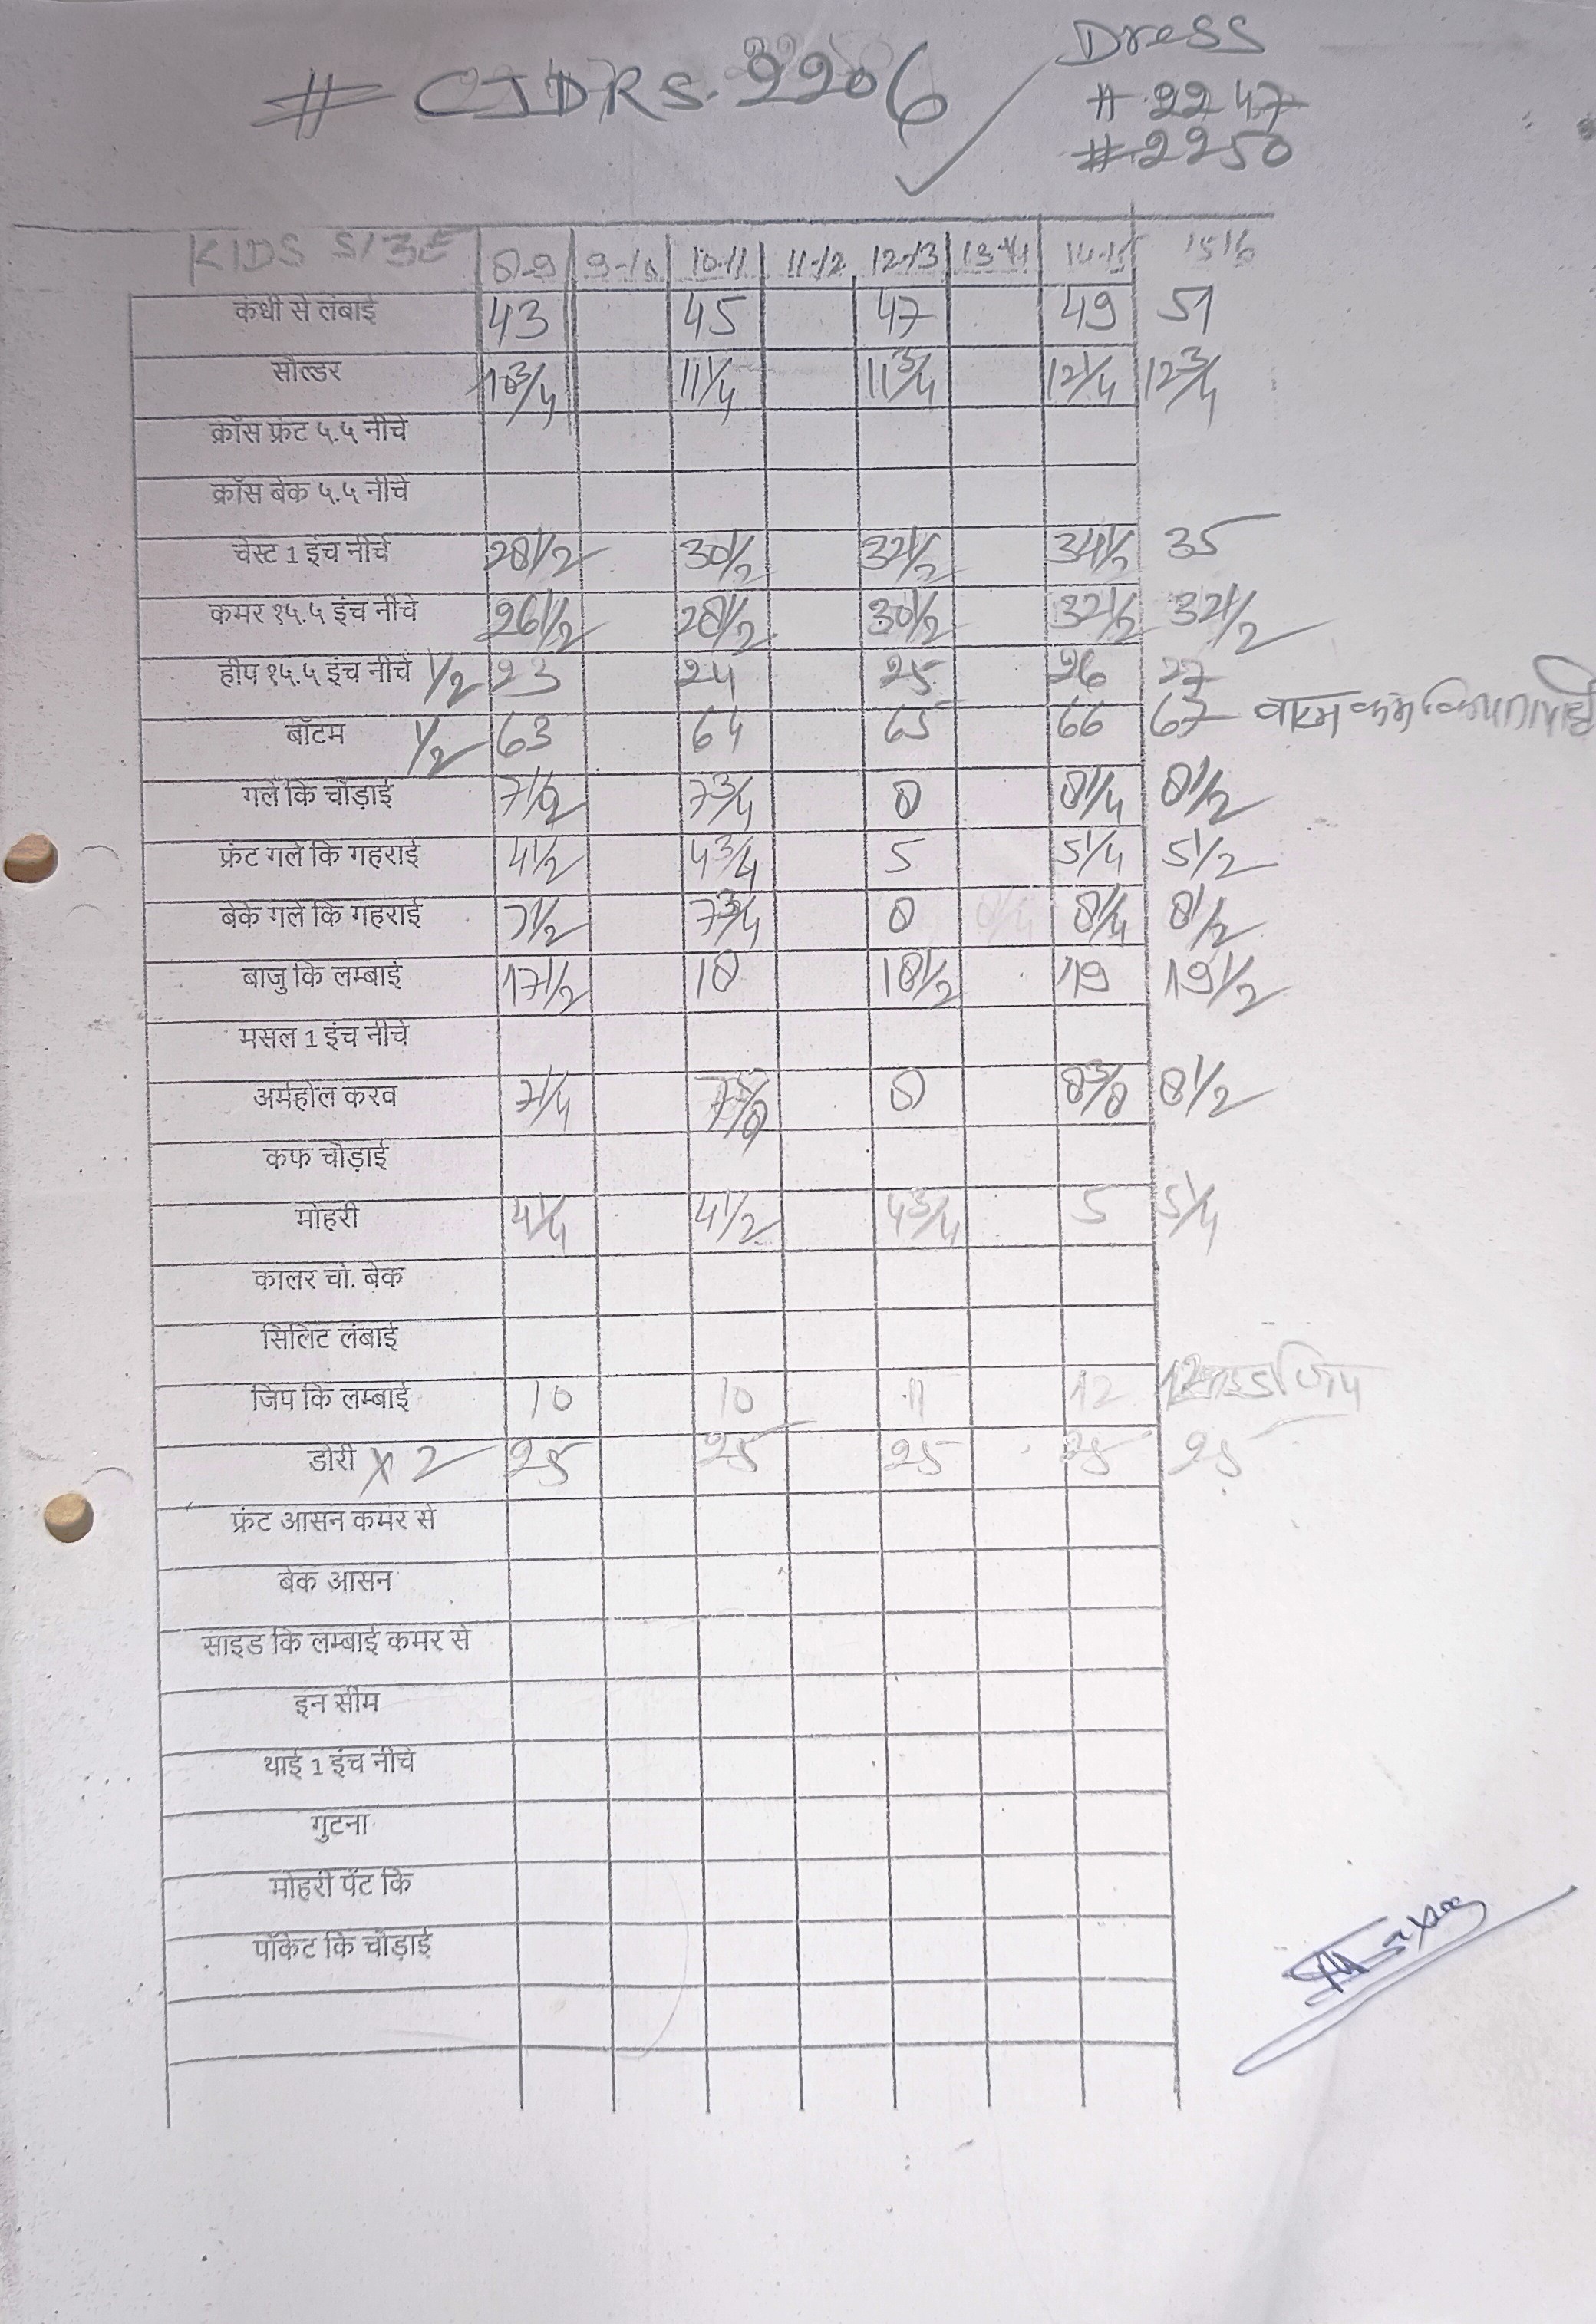 # CJDRS.2206
Dress
# 2247
# 2250
KIDS SIZE 8-9 9-10 10-11 11-12 12-13 13-14 14-15 15-16
कंधी से लंबाई 43 45 47 49 51
सोल्डर 10 3/4 11 1/4 11 3/4 12 1/4 12 3/4
क्रॉस फ्रंट ५.५ नीचे
क्रॉस बेक ५.५ नीचे
चेस्ट 1 इंच नीचे 28 1/2 30 1/2 32 1/2 34 1/2 35
कमर १५.५ इंच नीचे 26 1/2 28 1/2 30 1/2 32 1/2 32 1/2
हीप १५.५ इंच नीचे 1/2 23 24 25 26 27
बॉटम 1/2 63 64 65 66 67 कम
गले कि चौड़ाई 7 1/2 7 3/4 8 8 1/4 8 1/2
फ्रंट गले कि गहराई 4 1/2 4 3/4 5 5 1/4 5 1/2
बेके गले कि गहराई 7 1/2 7 3/4 8 8 1/4 8 1/2
बाजु कि लम्बाई 17 1/2 18 18 1/2 19 19 1/2
मसल 1 इंच नीचे
अर्महोल करव 7 1/4 7 5/8 8 8 3/8 8 1/2
कफ चौड़ाई
मोहरी 4 1/4 4 1/2 4 3/4 5 5 1/4
कालर चो. बेक
सिलिट लंबाई
जिप कि लम्बाई 10 10 11 12 12 साइड जिप
डोरी x 2 25 25 25 25 25
फ्रंट आसन कमर से
बेक आसन
साइड कि लम्बाई कमर से
इन सीम
थाई 1 इंच नीचे
गुटना
मोहरी पेंट कि
पॉकेट कि चौड़ाई